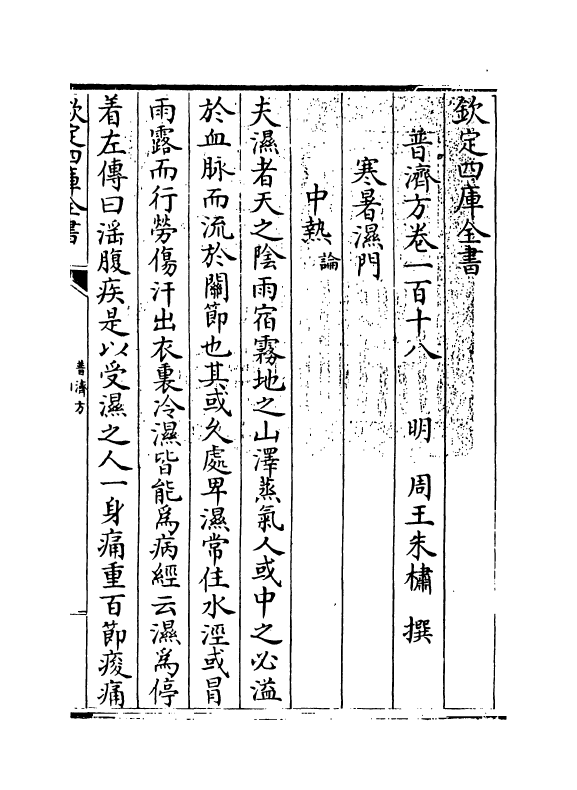 欽定四庫全書
普濟方卷一百十八 明 周王朱橚 撰
寒暑濕門
中熱 論
夫濕者天之陰雨宿霧地之山澤蒸氣人或中之必溢
於血脉而流於關節也其或久處卑濕常住水溼或冒
雨露而行勞傷汗出衣裏冷濕皆能爲病經云濕爲停
着左傳曰滛腹疾是以受濕之人一身痛重百節痠痛
欽定四庫全書
普濟方